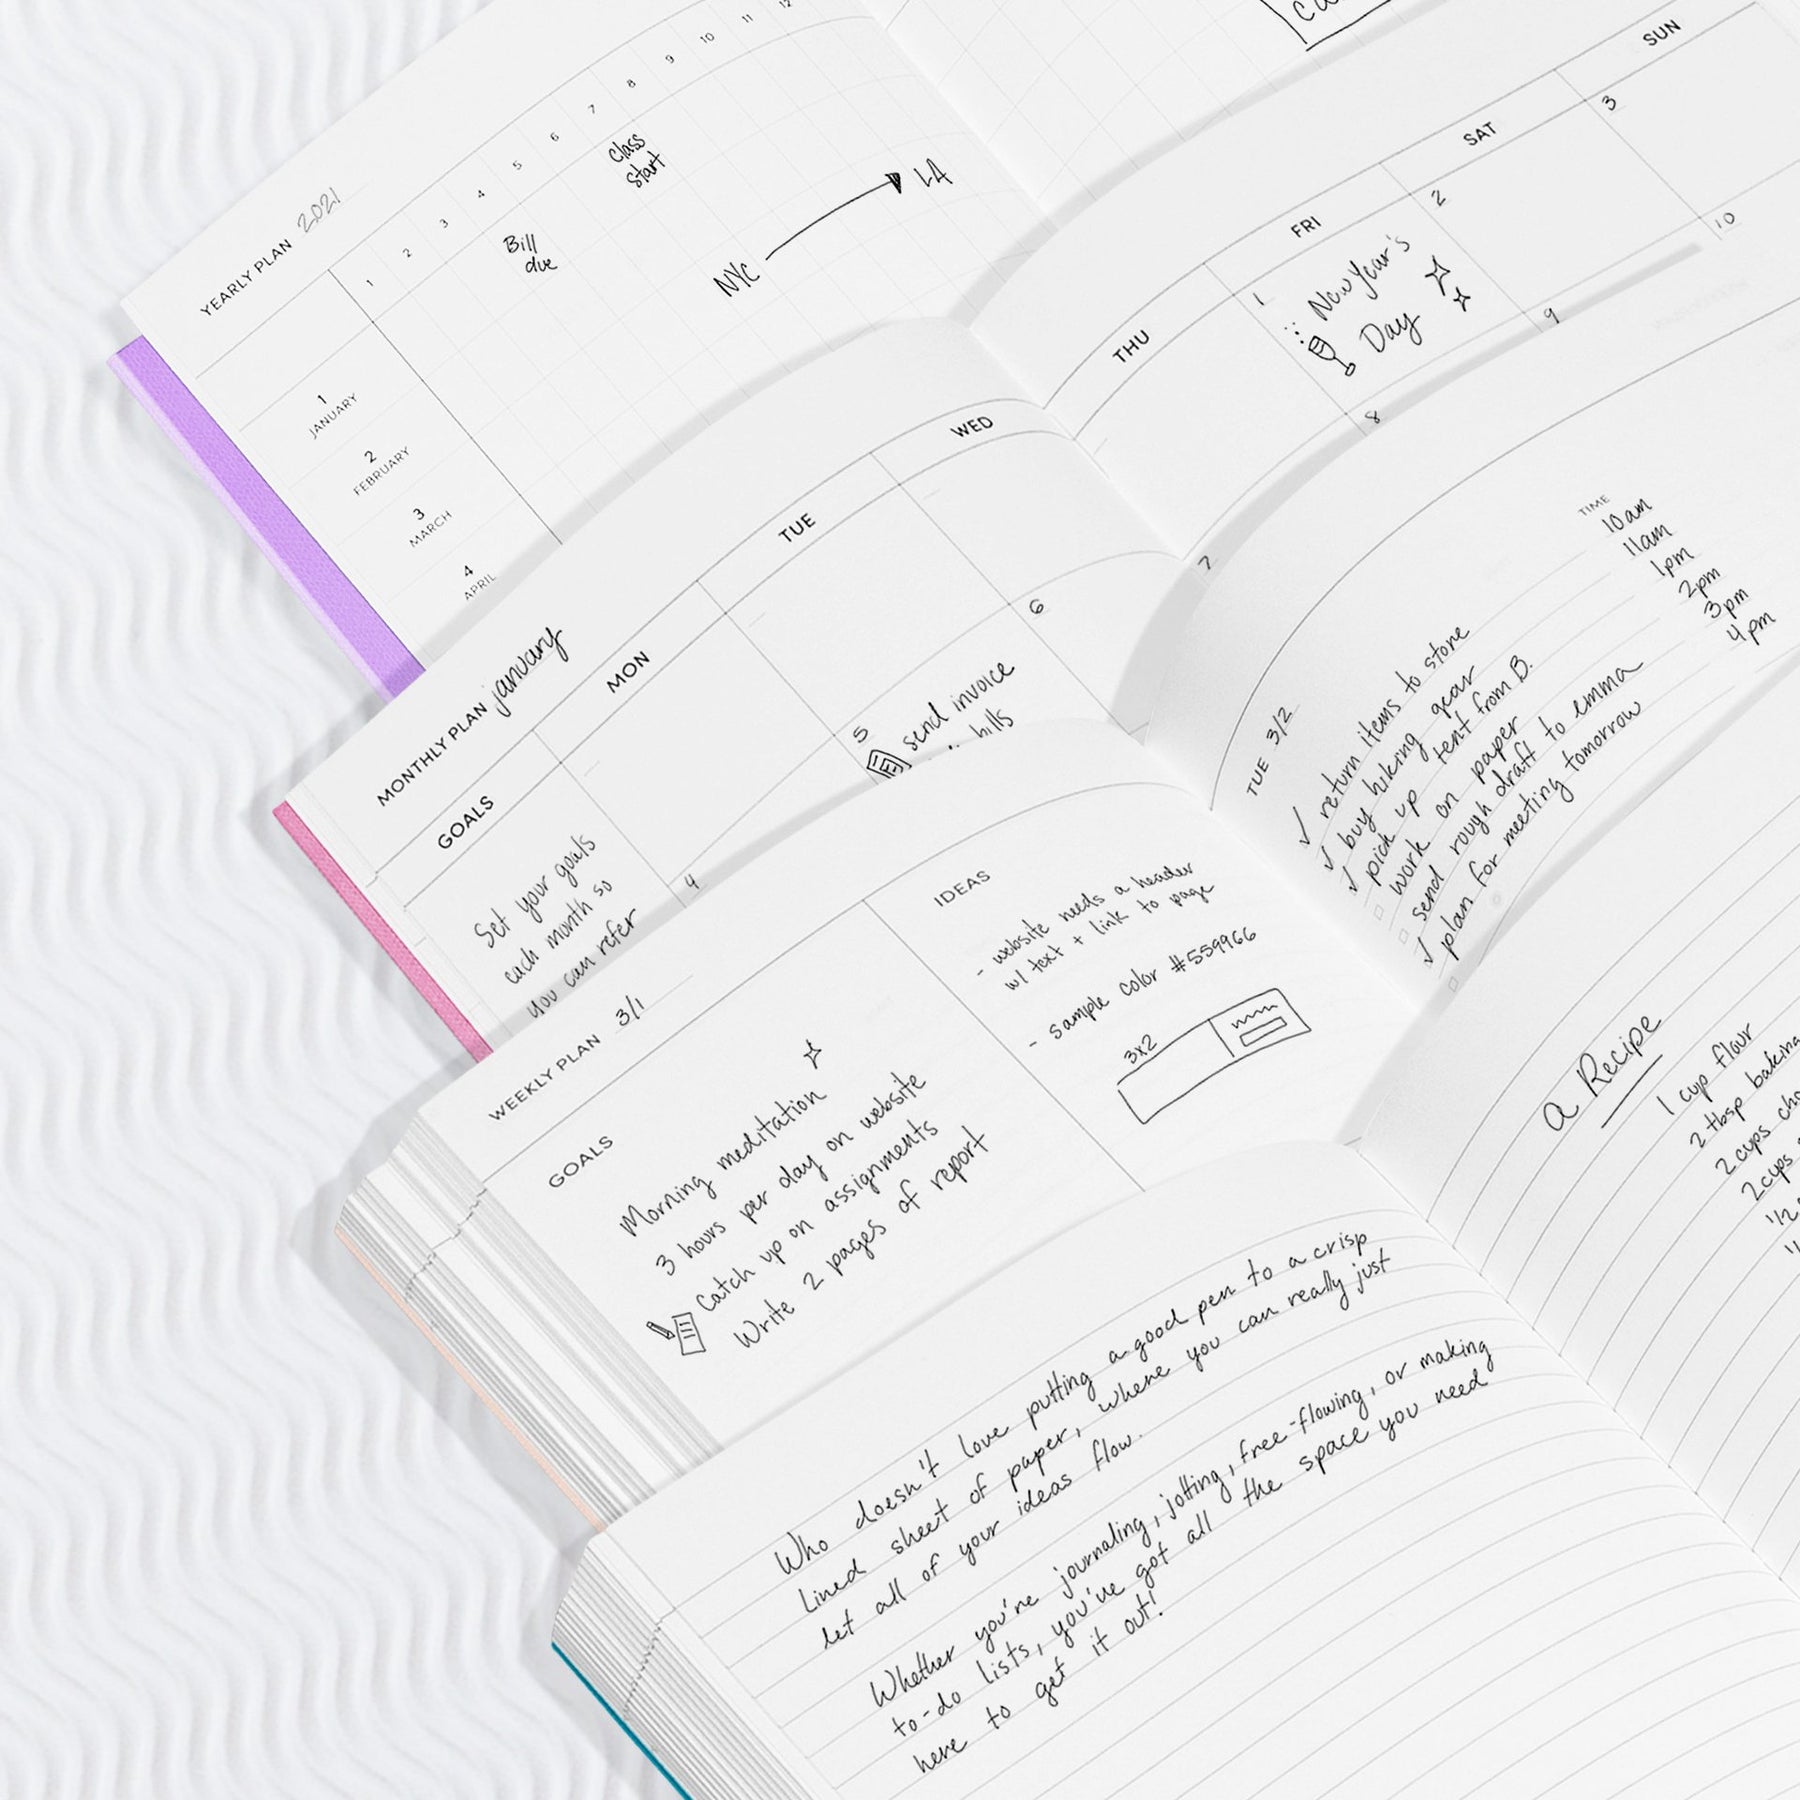 YEARLY PLAN 2021
1 2 3 4 5 6 7 8 9 10 11 12
1
JANUARY
2
FEBRUARY
3
MARCH
4
APRIL
Bill
due
Class
Start
NYC
LA
MONTHLY PLAN january
GOALS
MON
TUE
WED
THU
FRI
SAT
SUN
Set your goals
each month so
you can refer
4
5
send invoice
bills
6
7
1
New Year's
Day
2
3
8
9
10
WEEKLY PLAN 3/1
GOALS
Morning meditation
3 hours per day on website
Catch up on assignments
Write 2 pages of report
IDEAS
- website needs a header
w/ text + link to page
- sample color #559966
3x2
TUE 3/2
TIME
✓ return items to store 10am
✓ buy hiking gear 11am
✓ pick up tent from B. 1pm
work on paper 2pm
send rough draft to emma 3pm
✓ plan for meeting tomorrow 4pm
Who doesn't love putting a good pen to a crisp
lined sheet of paper, where you can really just
let all of your ideas flow.
Whether you're journaling, jotting, free-flowing, or making
to-do lists, you've got all the space you need
here to get it out!
a Recipe
1 cup flour
2 tbsp baking
2 cups
2 cups
1/2